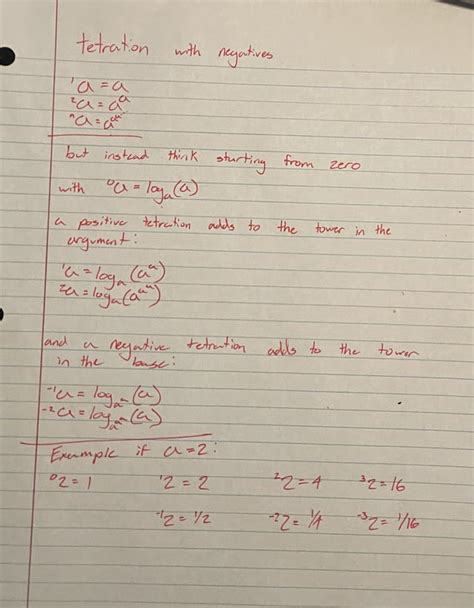 tetration with negatives
¹a = a
²a = aᵃ
ⁿa = a^a^a^..
but instead think starting from zero
with ⁰a = logₐ(a)
a positive tetration adds to the tower in the
argument:
¹a = logₐ(a^a)
²a = logₐ(a^a^a)
and a negative tetration adds to the tower
in the base:
⁻¹a = log_a^a(a)
⁻²a = log_a^a^a(a)
Example if a=2:
⁰2 = 1 ¹2 = 2 ²2 = 4 ³2 = 16
⁻¹2 = 1/2 ⁻²2 = 1/4 ⁻³2 = 1/16